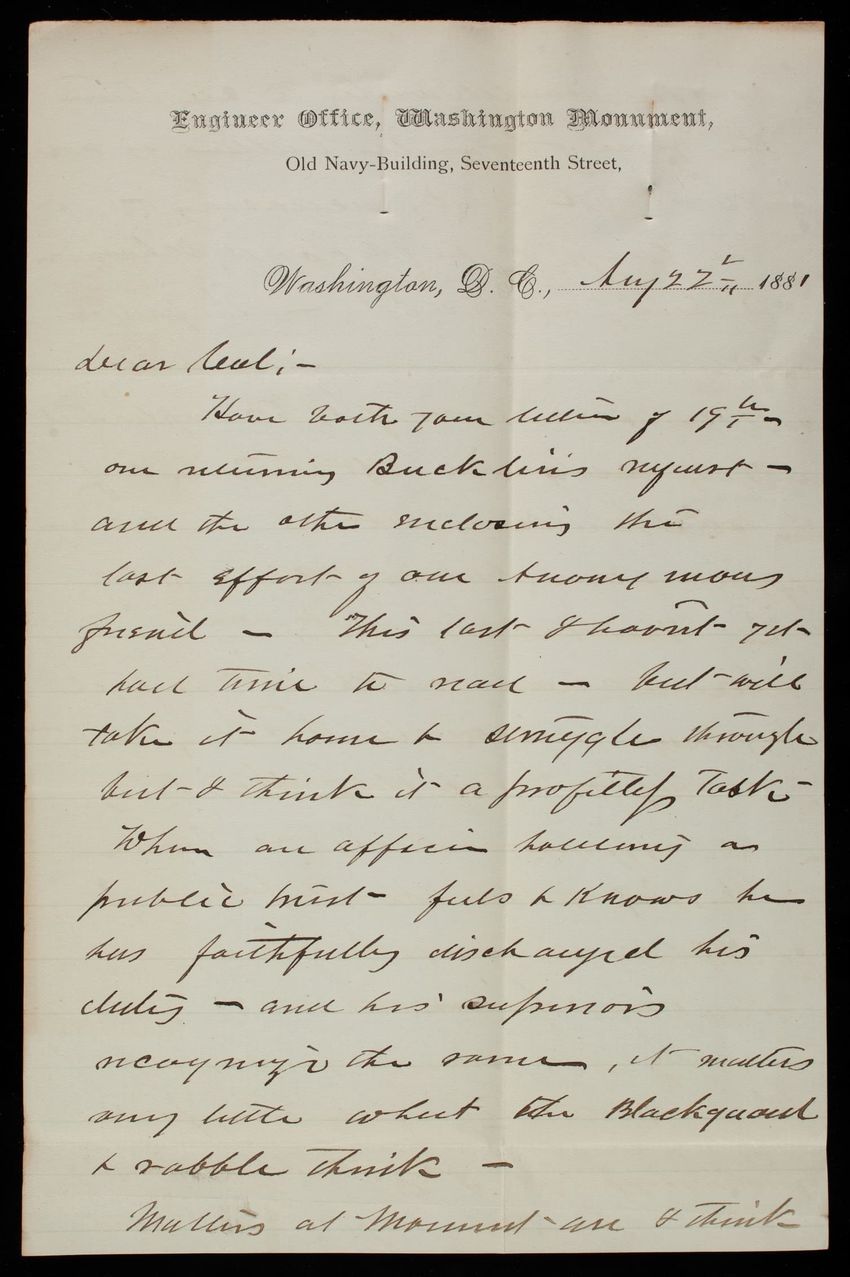 Engineer Office, Washington Monument,
Old Navy-Building, Seventeenth Street,
Washington, D. C., Aug 22nd 1881
Dear Col; -
Have both your letters of 19th -
one returning Bucklin's request -
and the other enclosing the
last effort of our Anonymous
friend - This last I havn't yet
had time to read - but will
take it home & struggle through
but I think it a profitless Task -
When an officer holding a
public trust feels & Knows he
has faithfully discharged his
duty - and his superiors
recognize the same, it matters
very little what the Blackguard
& rabble think -
Matters at Monument are I think